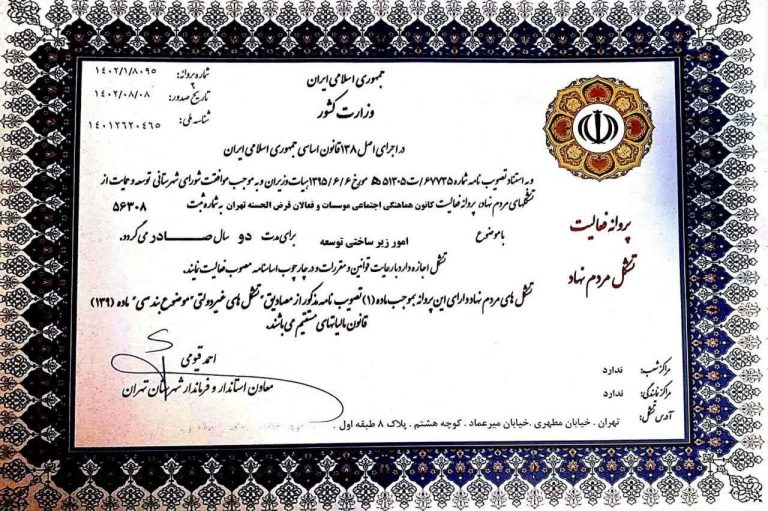 جمهوری اسلامی ایران
وزارت کشور
شماره پروانه: ۱۴۰۲/۱/۸۰۹۵
تاریخ صدور: ۱۴۰۲/۰۸/۰۸
شناسه ملی: ۱۴۰۱۲۶۲۰۴۶۵
در اجرای اصل ۱۳۸ قانون اساسی جمهوری اسلامی ایران
و به استناد تصویب نامه شماره ۶۷۷۳۵/ت۵۱۳۰۵ ﻫ مورخ ۱۳۹۵/۶/۶ هیات وزیران و به موجب موافقت شورای شهرستانی توسعه و حمایت از
تشکلهای مردم نهاد، پروانه فعالیت کانون هماهنگی اجتماعی موسسات و فعالان قرض الحسنه تهران به شماره ثبت ۵۶۳۰۸
با موضوع امور زیر ساختی توسعه برای مدت دو سال صادر می گردد.
تشکل اجازه دارد با رعایت قوانین و مقررات و در چارچوب اساسنامه مصوب فعالیت نمایند.
تشکل های مردم نهاد دارای این پروانه بموجب ماده (۱) تصویب نامه مذکور از مصادیق "تشکل های غیردولتی" موضوع بند سی" ماده (۱۳۹)
قانون مالیاتهای مستقیم می باشند.
پروانه فعالیت
تشکل مردم نهاد
احمد قیومی
معاون استاندار و فرماندار شهرستان تهران
مراکز شعب: ندارد
مراکز نمایندگی: ندارد
آدرس تشکل: تهران . خیابان مطهری .خیابان میرعماد . کوچه هشتم . پلاک ۸ طبقه اول .